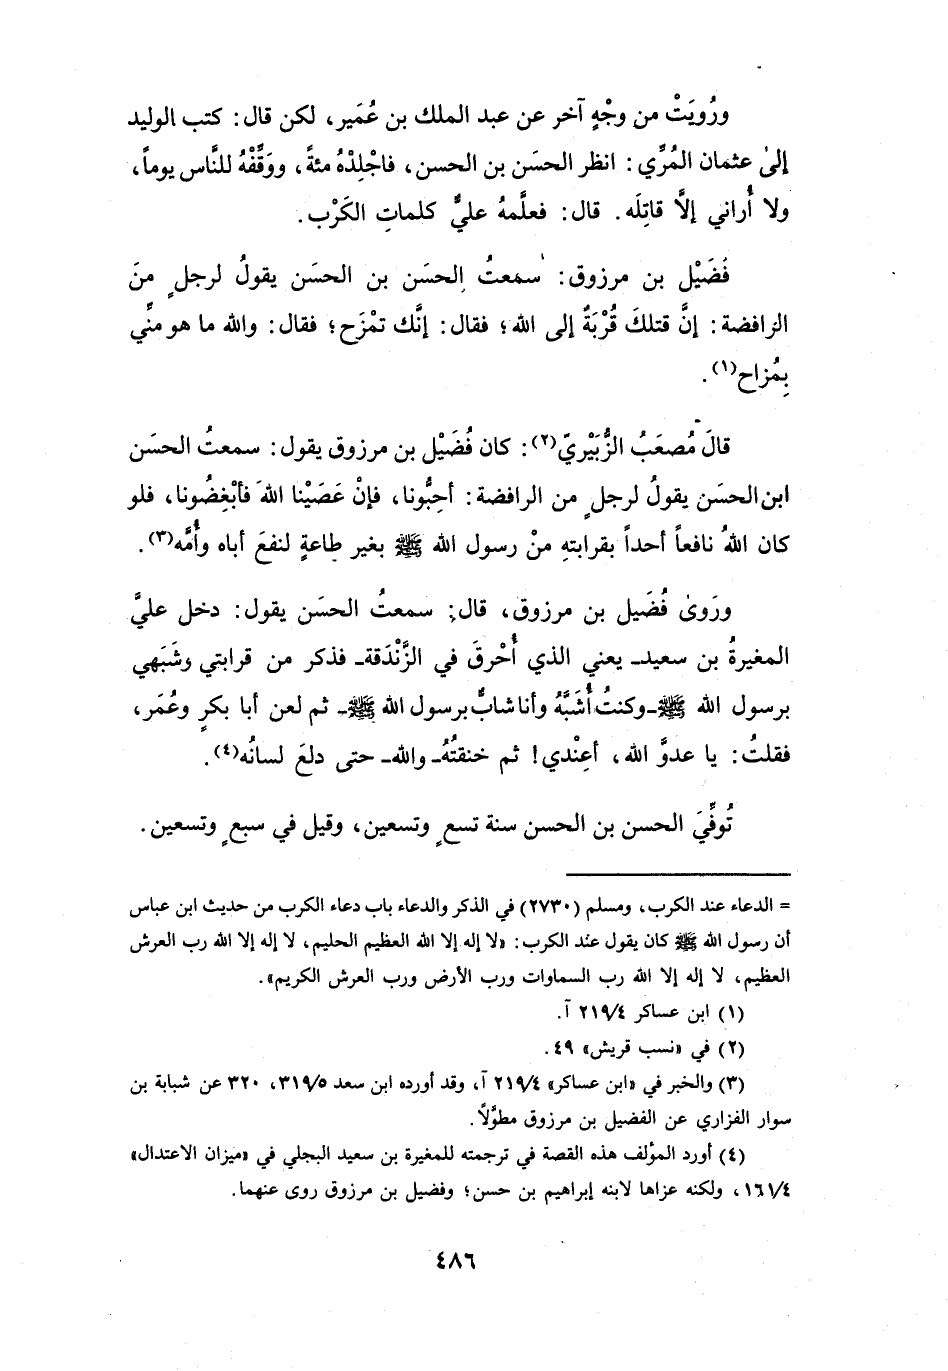 ورُوِيَتْ من وجْهٍ آخر عن عبد الملك بن عُمَير، لكن قال: كتب الوليد
إلىٰ عثمان المُرِّي: انظر الحسَن بن الحسن، فاجْلِدْهُ مئةً، ووَقِّفْهُ للنَّاس يوماً،
ولا أُراني إلَّا قاتِلَه. قال: فعلَّمهُ عليٌّ كلماتِ الكَرْب.
فُضَيْل بن مرزوق: سمعتُ الحسَن بن الحسَن يقولُ لرجلٍ منَ
الرافضة: إنَّ قتلكَ قُرْبَةٌ إلى الله؛ فقال: إنَّك تمْزَح؛ فقال: والله ما هو منِّي
بِمُزاح(١).
قالَ مُصعَبُ الزُّبَيْريّ(٢): كان فُضَيْل بن مرزوق يقول: سمعتُ الحسَن
ابن الحسَن يقولُ لرجلٍ من الرافضة: أحِبُّونا، فإنْ عَصَيْنا اللهَ فأبْغِضُونا، فلو
كان اللهُ نافعاً أحداً بقرابتهِ منْ رسول الله ﷺ بغير طاعةٍ لنفعَ أباه وأُمَّه(٣).
ورَوىٰ فُضَيل بن مرزوق، قال: سمعتُ الحسَن يقول: دخل عليَّ
المغيرةُ بن سعيد ـ يعني الذي أُحْرِقَ في الزَّنْدَقة ـ فذكر من قرابتي وشَبَهي
برسول الله ﷺ ـ وكنتُ أُشَبَّهُ وأنا شابٌّ برسول الله ﷺ ـ ثم لعن أبا بكرٍ وعُمَر،
فقلتُ: يا عدوَّ الله، أعِنْدي! ثم خنقتُهُ ـ والله ـ حتى دلعَ لسانُه(٤).
تُوفِّيَ الحسن بن الحسن سنة تسعٍ وتسعين، وقيل في سبعٍ وتسعين.
= الدعاء عند الكرب، ومسلم (٢٧٣٠) في الذكر والدعاء باب دعاء الكرب من حديث ابن عباس
أن رسول الله ﷺ كان يقول عند الكرب: «لا إله إلا الله العظيم الحليم، لا إله إلا الله رب العرش
العظيم، لا إله إلا الله رب السماوات ورب الأرض ورب العرش الكريم».
(١) ابن عساكر ٢١٩/٤ آ.
(٢) في «نسب قريش» ٤٩.
(٣) والخبر في «ابن عساكر» ٢١٩/٤ آ، وقد أورده ابن سعد ٣١٩/٥، ٣٢٠ عن شبابة بن
سوار الفزاري عن الفضيل بن مرزوق مطوَّلاً.
(٤) أورد المؤلف هذه القصة في ترجمته للمغيرة بن سعيد البجلي في «ميزان الاعتدال»
١٦١/٤، ولكنه عزاها لابنه إبراهيم بن حسن؛ وفضيل بن مرزوق روى عنهما.
٤٨٦